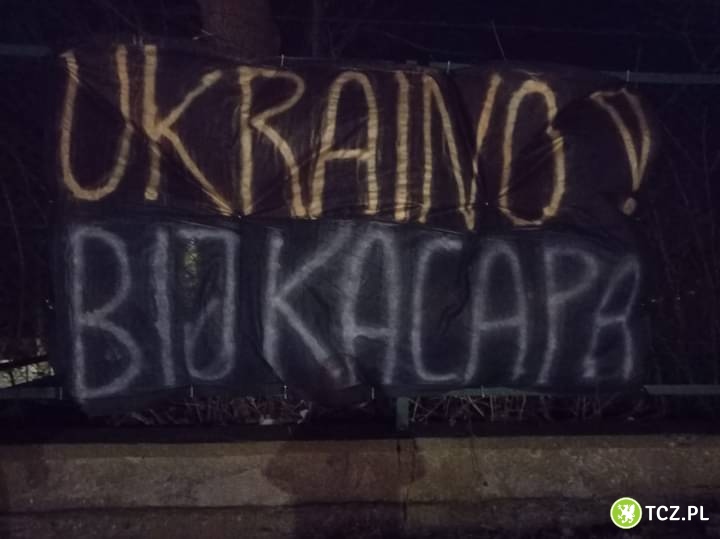 UKRAINO!
BIJ KACAPA
TCZ.PL